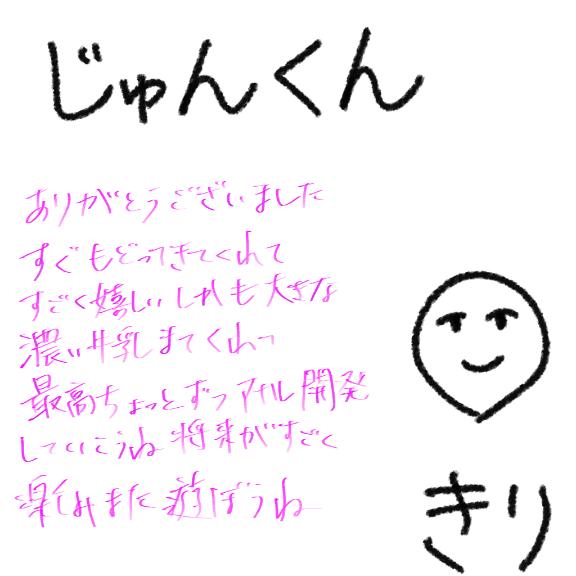 じゅんくん
ありがとうございました
すぐもどってきてくれて
すごく嬉しいしかも大きな
濃い牛乳までくれっ
最高ちょっとずつアナル開発
していこうね将来がすごく
楽しみまた遊ぼうね
きり